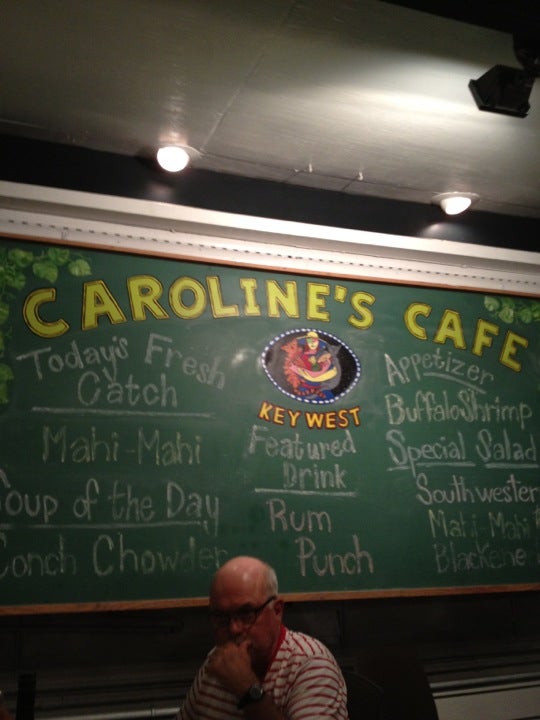 CAROLINE'S CAFE
KEY WEST
Today's Fresh
Catch
Mahi-Mahi
Soup of the Day
Conch Chowder
Featured
Drink
Rum
Punch
Appetizer
Buffalo Shrimp
Special Salad
Southwester
Mahi-Mahi
Blackene